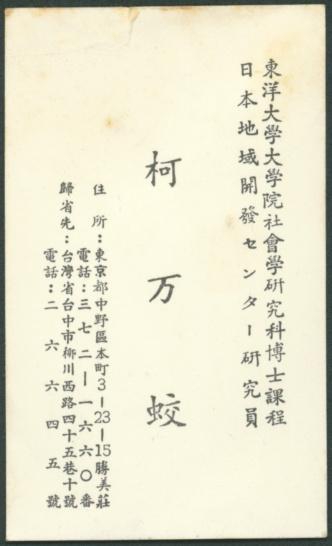 東洋大學大学院社會學研究科博士課程
日本地域開發センター研究員
柯万蛟
住所：東京都中野區本町3-23-15勝美莊
電話：三七二一一六六〇番
歸省先：台灣省台中市柳川西路四十五巷十號
電話：二六六四五號